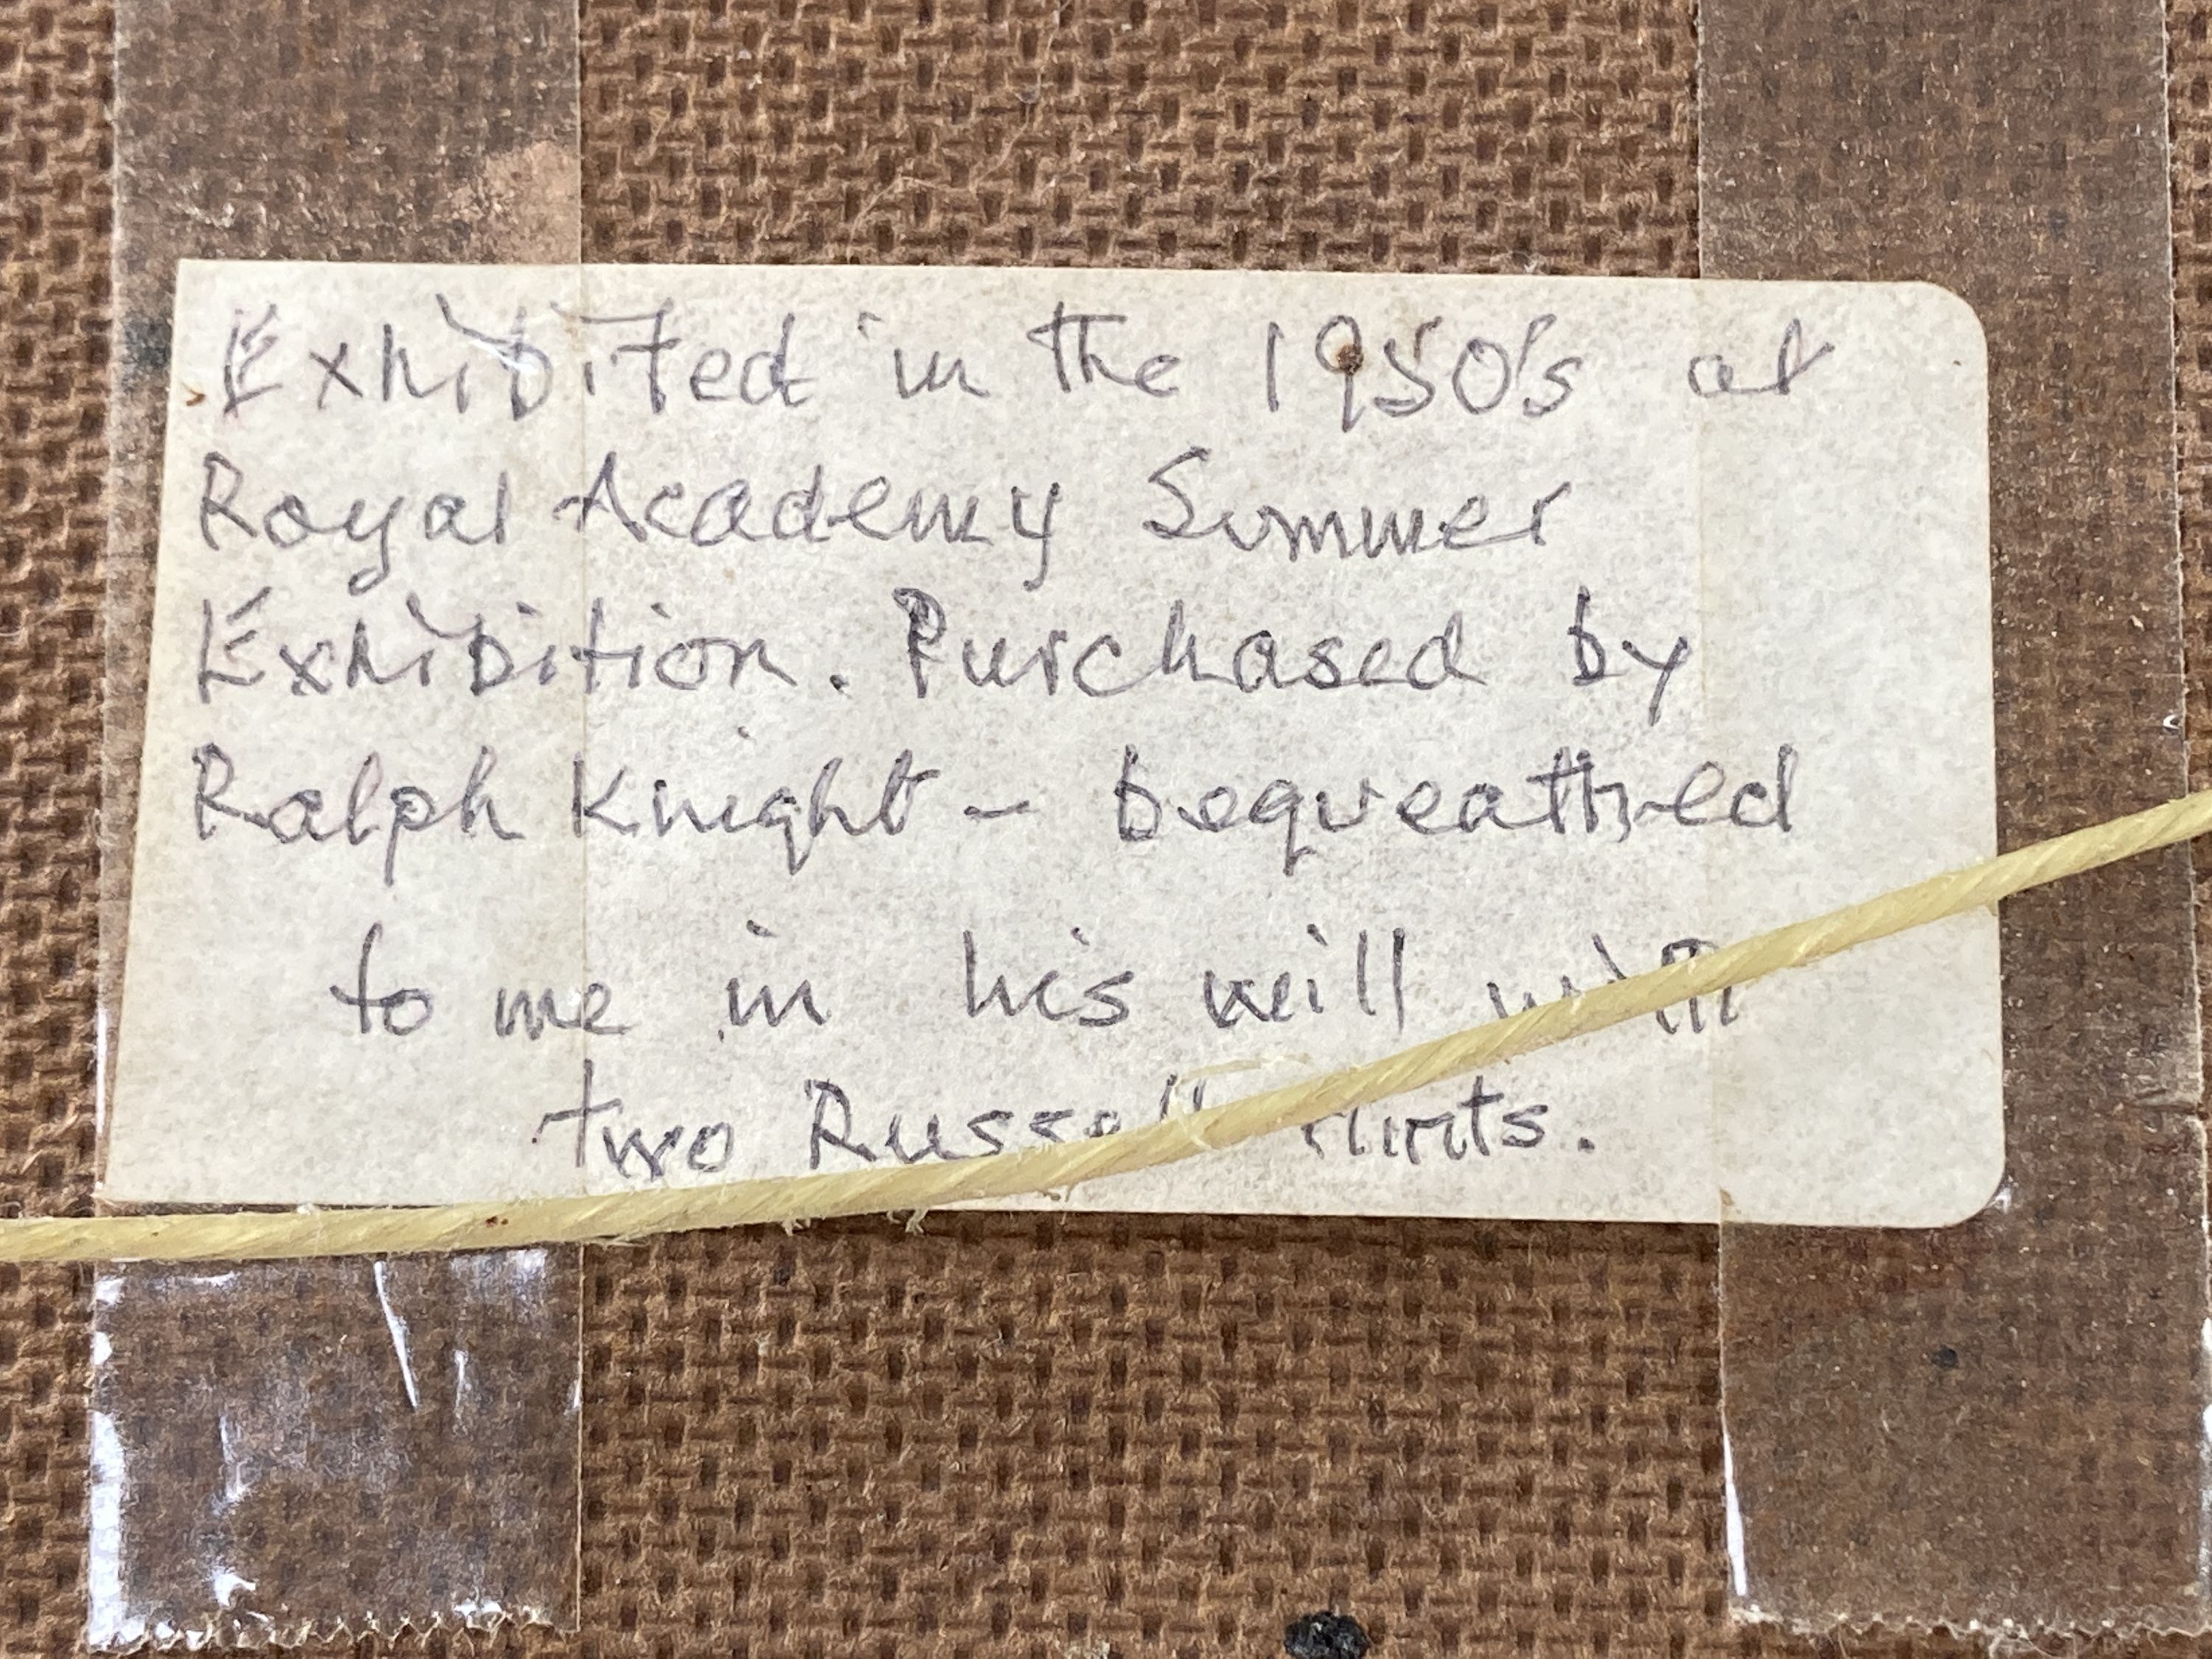 Exhibited in the 1950's at
Royal Academy Summer
Exhibition. Purchased by
Ralph Knight - bequeathed
to me in his will with
two Russell Flints.